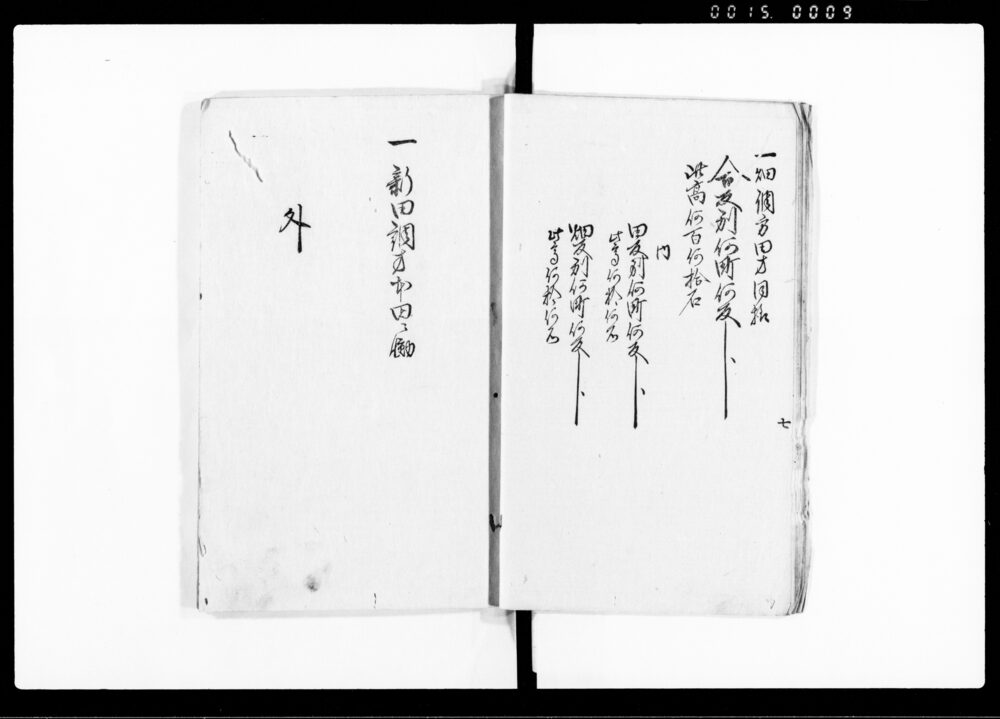 0015. 0009
一畑調方田方同撿
合反別何町何反ト
此高何百何拾石
内
田反別何町何反ト
此高何拾何石
畑反別何町何反ト
此高何拾何石
七
一新田調方本田ニ
外